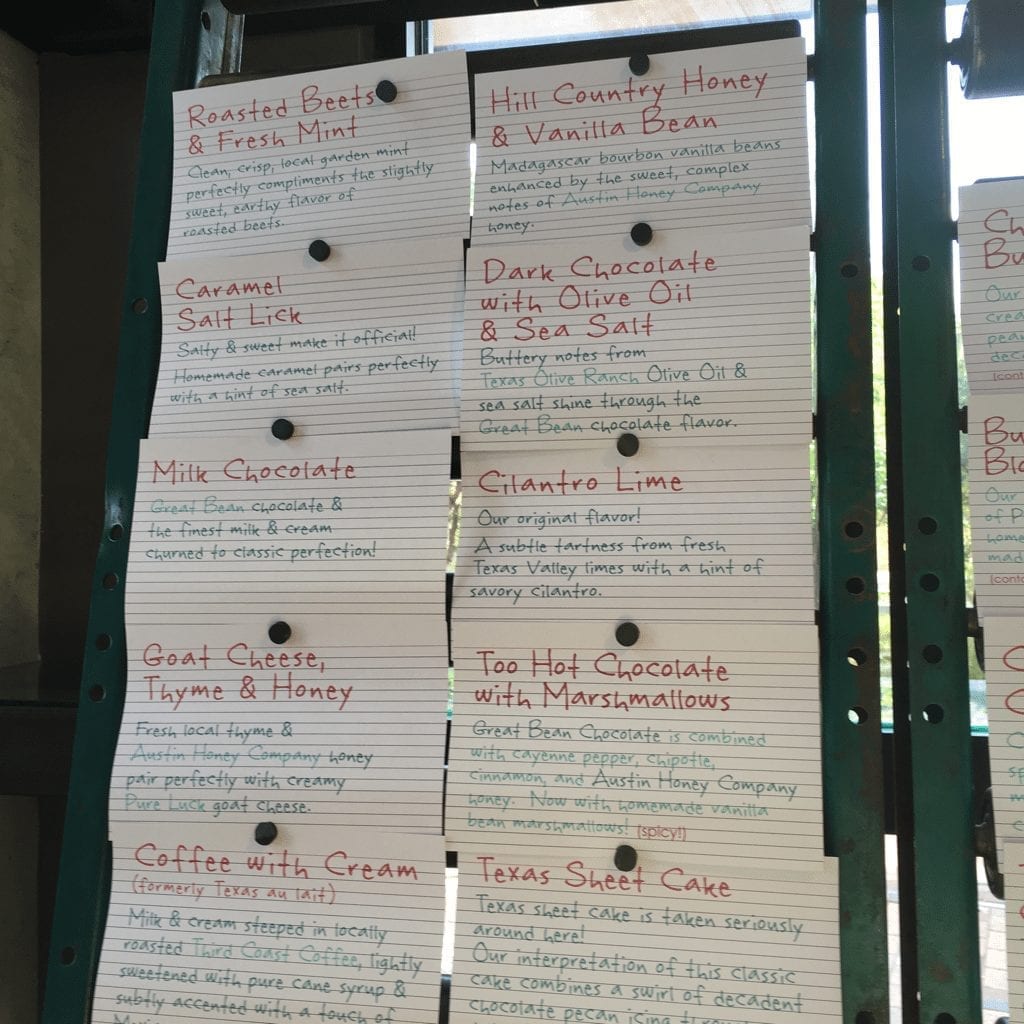 Roasted Beets
& Fresh Mint
Clean, crisp, local garden mint
perfectly compliments the slightly
sweet, earthy flavor of
roasted beets.
Hill Country Honey
& Vanilla Bean
Madagascar bourbon vanilla beans
enhanced by the sweet, complex
notes of Austin Honey Company
honey.
Caramel
Salt Lick
Salty & sweet make it official!
Homemade caramel pairs perfectly
with a hint of sea salt.
Dark Chocolate
with Olive Oil
& Sea Salt
Buttery notes from
Texas Olive Ranch Olive Oil &
sea salt shine through the
Great Bean chocolate flavor.
Milk Chocolate
Great Bean chocolate &
the finest milk & cream
churned to classic perfection!
Cilantro Lime
Our original flavor!
A subtle tartness from fresh
Texas Valley limes with a hint of
savory cilantro.
Goat Cheese,
Thyme & Honey
Fresh local thyme &
Austin Honey Company honey
pair perfectly with creamy
Pure Luck goat cheese.
Too Hot Chocolate
with Marshmallows
Great Bean Chocolate is combined
with cayenne pepper, chipotle,
cinnamon, and Austin Honey Company
honey. Now with homemade vanilla
bean marshmallows! (spicy!)
Coffee with Cream
(formerly Texas au lait)
Milk & cream steeped in locally
roasted Third Coast Coffee, lightly
sweetened with pure cane syrup &
subtly accented with a touch of
Texas Sheet Cake
Texas sheet cake is taken seriously
around here!
Our interpretation of this classic
cake combines a swirl of decadent
chocolate pecan icing through
Our
Our
of